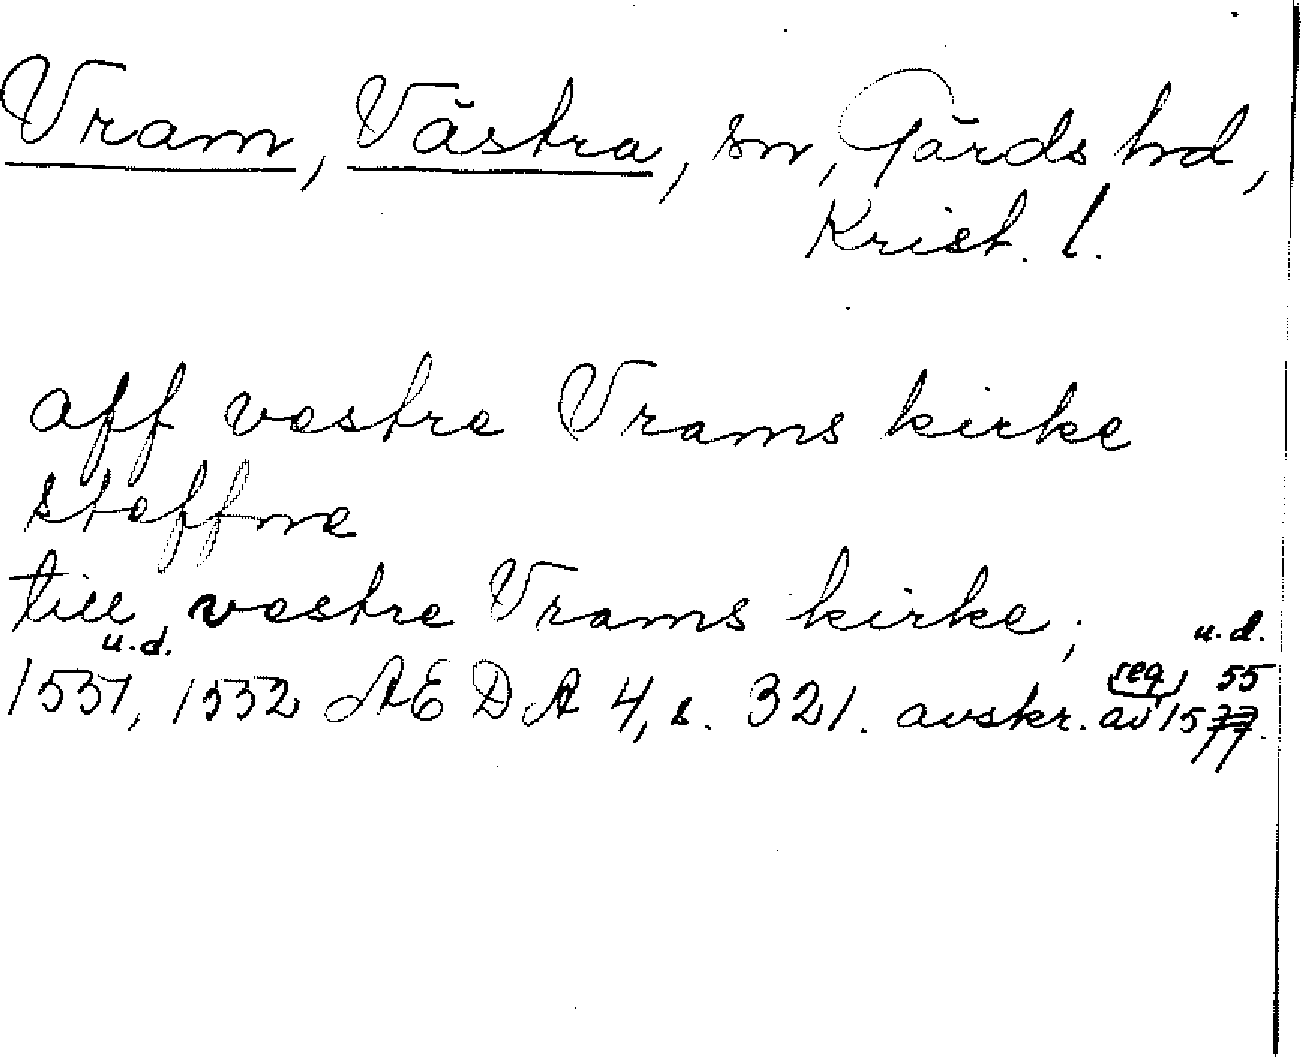 Vram, Västra, sn, Gärds hd,
Krist. l.
aff vestre Vrams kirke
steffne
till vestre Vrams kirke;
u.d. u.d.
1531, 1532 AEDA 4, s. 321. avskr. av 15
reg 55